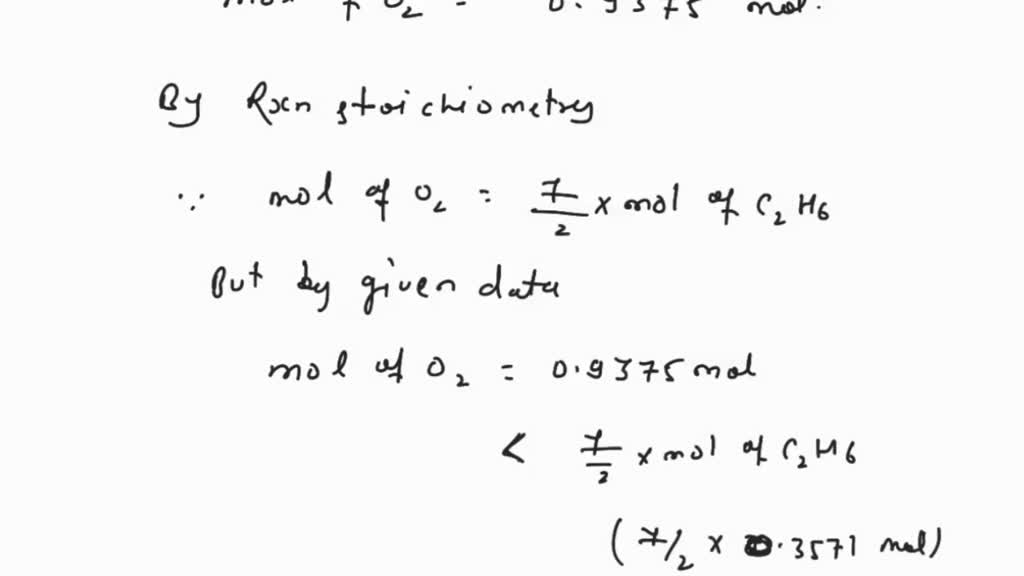 O₂ = 0.9375 mol.
By Rxn stoichiometry
∵ mol of O₂ = 7/2 x mol of C₂H₆
But by given data
mol of O₂ = 0.9375 mol
< 7/2 x mol of C₂H₆
(7/2 x 0.3571 mol)